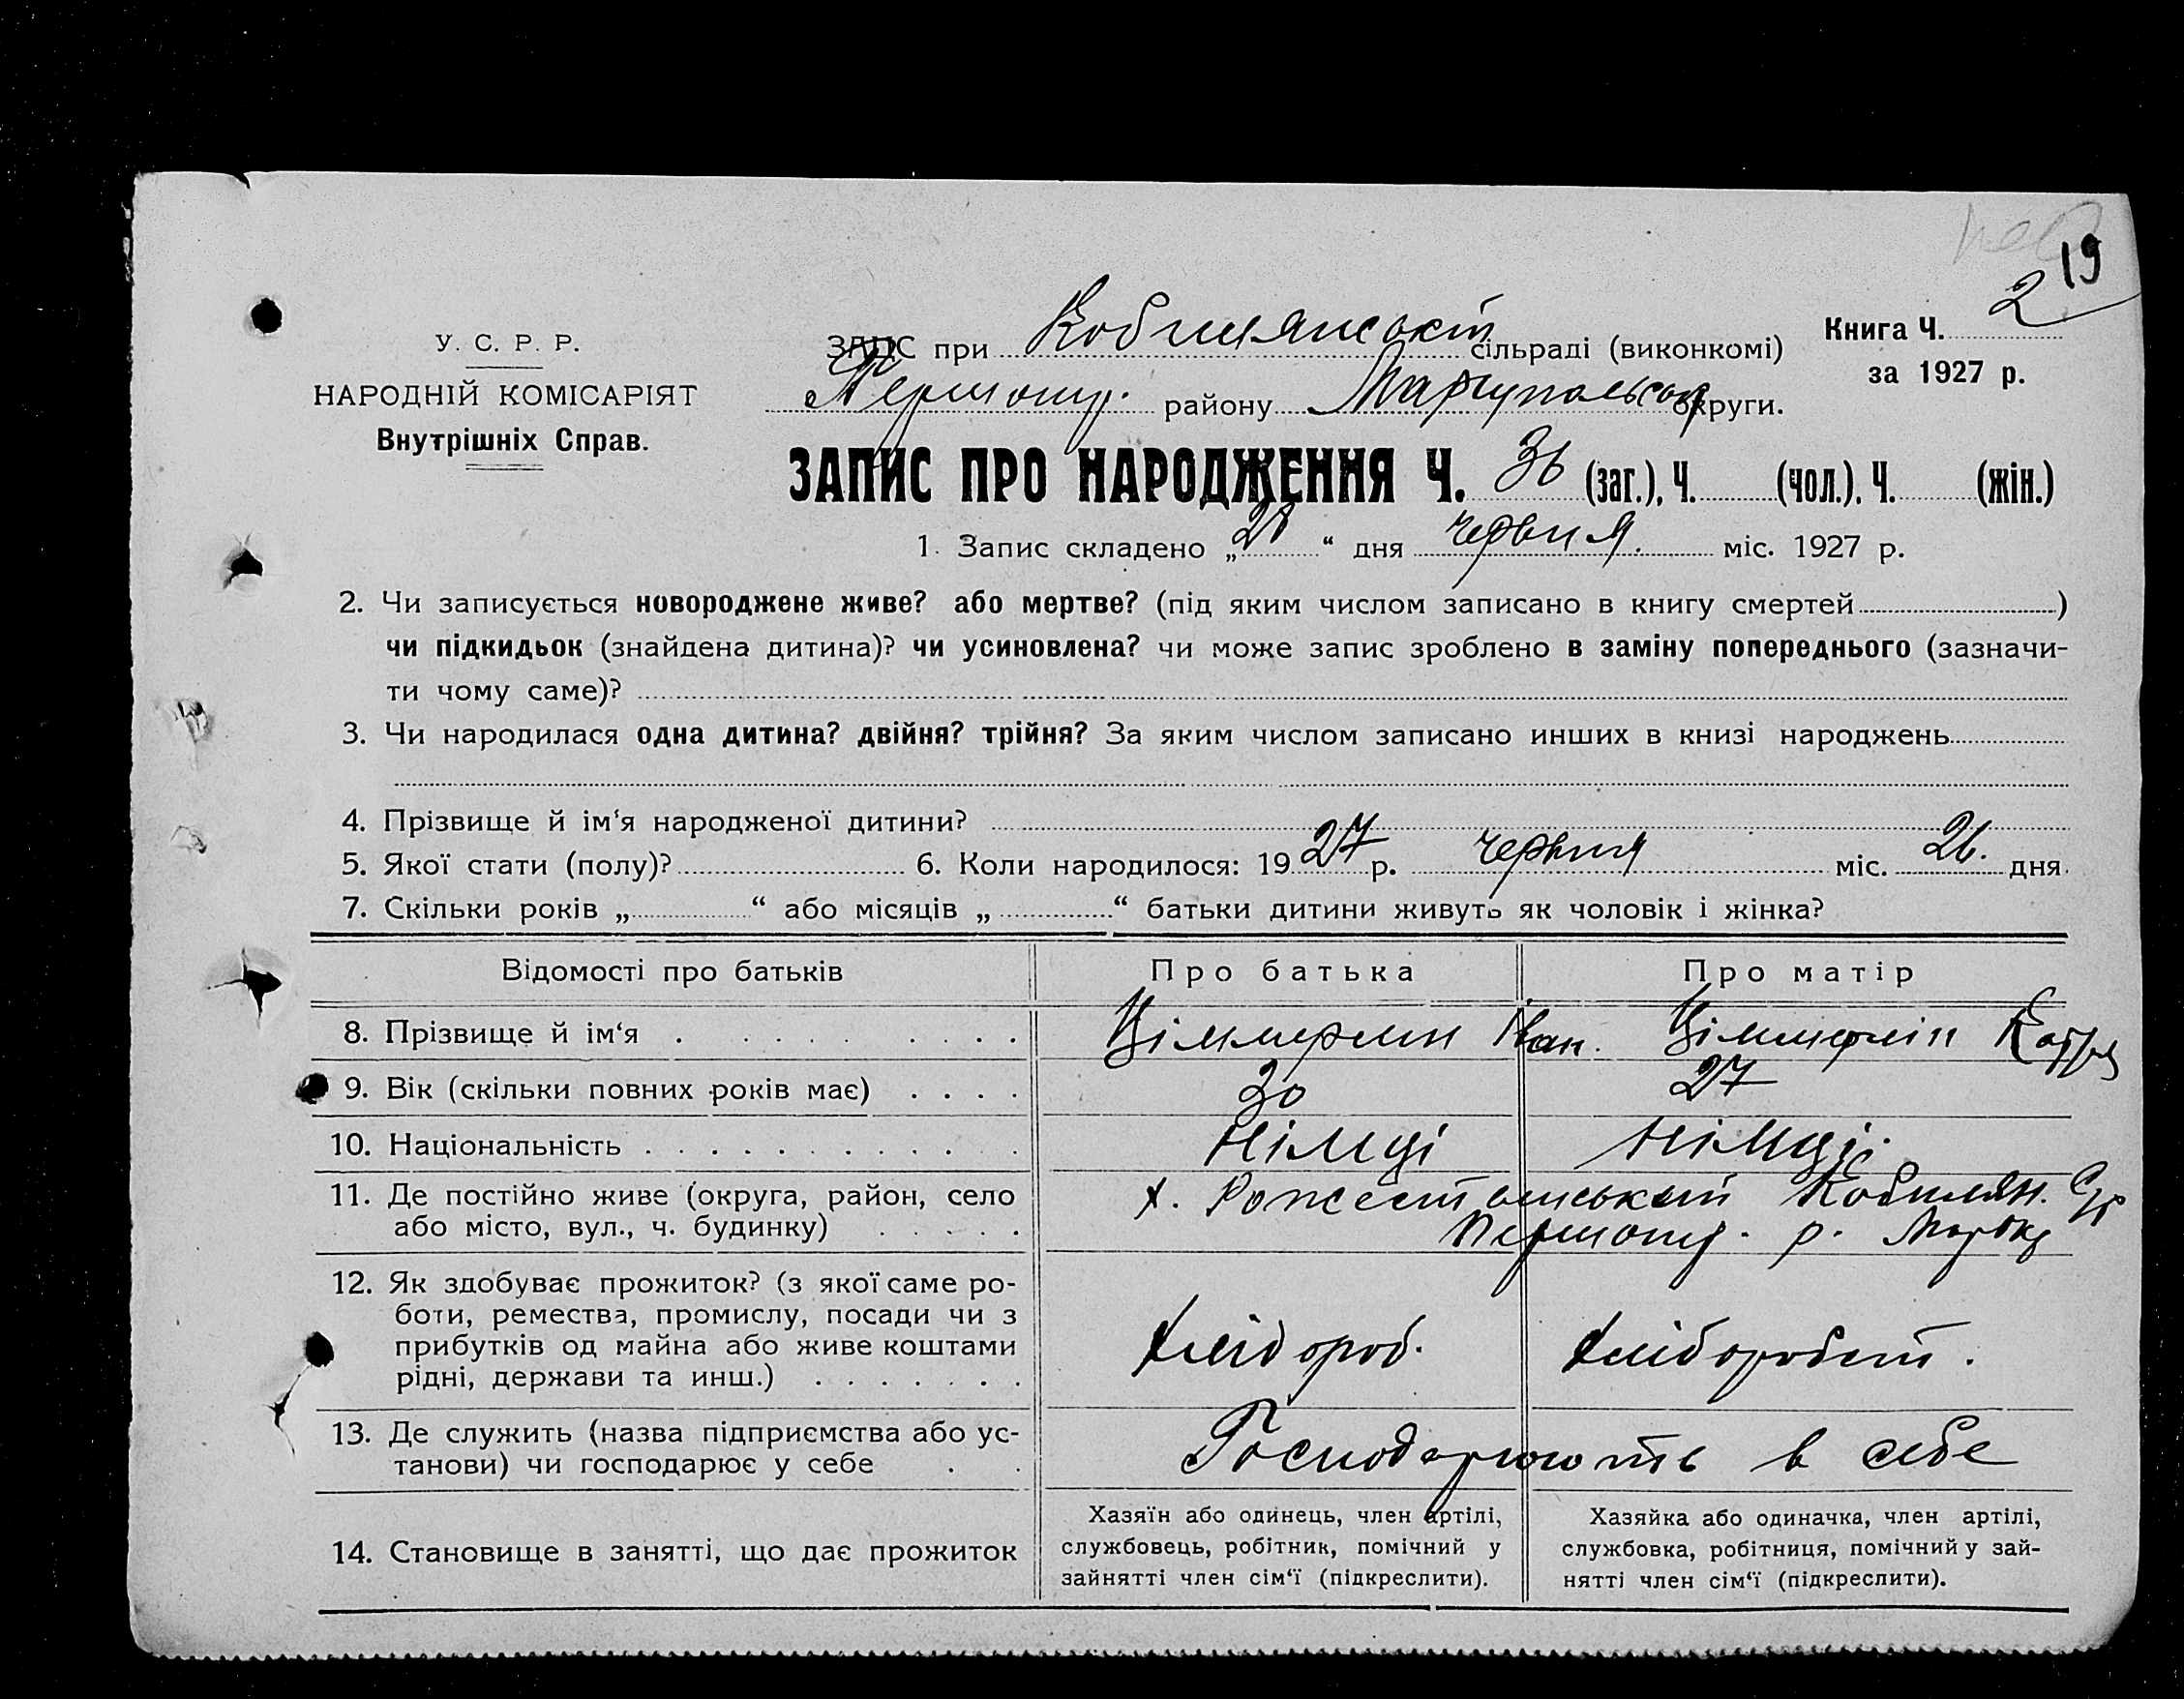 19
У. С. Р. Р.
НАРОДНІЙ КОМІСАРІЯТ
Внутрішніх Справ.
ЗАПИС при Кобилянській сільраді (виконкомі)
Першотр. району Маріупольськ округи.
Книга Ч. 2
за 1927 р.
ЗАПИС ПРО НАРОДЖЕННЯ Ч. 36 (заг.), Ч. (чол.), Ч. (жін.)
1. Запис складено „28“ дня червня. міс. 1927 р.
2. Чи записується новороджене живе? або мертве? (під яким числом записано в книгу смертей )
чи підкидьок (знайдена дитина)? чи усиновлена? чи може запис зроблено в заміну попереднього (зазначи-
ти чому саме)?
3. Чи народилася одна дитина? двійня? трійня? За яким числом записано инших в книзі народжень
4. Прізвище й ім‘я народженої дитини?
5. Якої стати (полу)? 6. Коли народилося: 1927 р. червня міс. 26. дня.
7. Скільки років „ “ або місяців „ “ батьки дитини живуть як чоловік і жінка?
Відомості про батьків Про батька Про матір
8. Прізвище й ім‘я Іван.
9. Вік (скільки повних років має) 30 27
10. Національність Німці Німці.
11. Де постійно живе (округа, район, село х. Кобилян.
або місто, вул., ч. будинку) р.
12. Як здобуває прожиток? (з якої саме ро-
боти, ремества, промислу, посади чи з
прибутків од майна або живе коштами Хлібороб.
рідні, держави та инш.)
13. Де служить (назва підприємства або ус- Господарюють в себе
танови) чи господарює у себе
14. Становище в занятті, що дає прожиток
Хазяїн або одинець, член артілі,
службовець, робітник, помічний у
зайнятті член сім‘ї (підкреслити).
Хазяйка або одиначка, член артілі,
службовка, робітниця, помічний у зай-
нятті член сім‘ї (підкреслити).